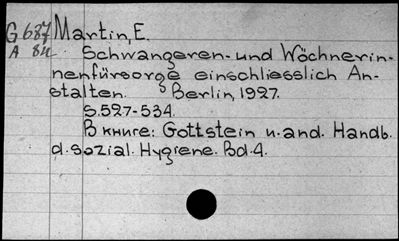 G 687 Martin, E.
A 84 Schwangeren- und Wöchnerin-
nenfürsorge einschliesslich An-
stalten. Berlin, 1927.
S.527-534.
В книге: Gottstein u. and. Handb.
d. sozial. Hygiene. Bd. 4.